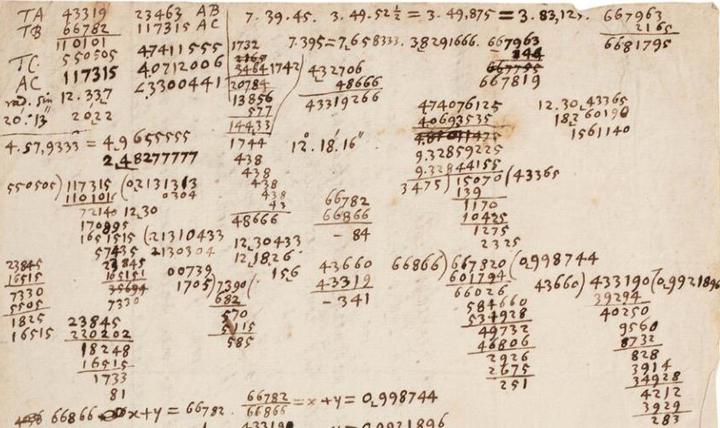 TA 43319 23463 AB
TB 66782 117315 AC
110101
TC. 550505 47411555
AC 117315 4.0712006
63300441
12.337
20.13" 2022
4.57,9333 = 4,9655555
2,48277777
550505) 117315 (0,2131313
110101 0304
72140 12.30
170895
1651515 (21310433
57435 2130304
23845 23845
16515 165151
7330 35694
5505 7330
1825 23845
16515 220202
18248
16515
1733
81
7. 39. 45. 3. 49. 52½ = 3. 49,875 = 3. 83,125.
1732 7.395 = 7,658333. 3,8291666.
3464 1742
20784
13856
577
14433
1744
438
438
438
438
43
48666
432706
48666
43319266
12°. 18.' 16"
66782
66866
- 84
12,30433
12,1826
00739 156
1705) 7390 (
682
570
5115
585
43660
43319
- 341
667963
2165
6681795
667963
144
667795
667819
474076125
40693535
9.32859225
9.32844155
3475) 15070 (43365
139
1170
10425
1275
2325
12.30,43365
18,260190
1561140
66866) 667820 (0,998744
601794
66026
584660
534928
49732
46806
2926
2675
251
43660) 433190 (0,9921896
39294
40250
9560
8732
828
3914
34928
4212
3929
283
66866 x + y = 66782. 66782
66866 = x + y = 0,998744
433190 0,9921896